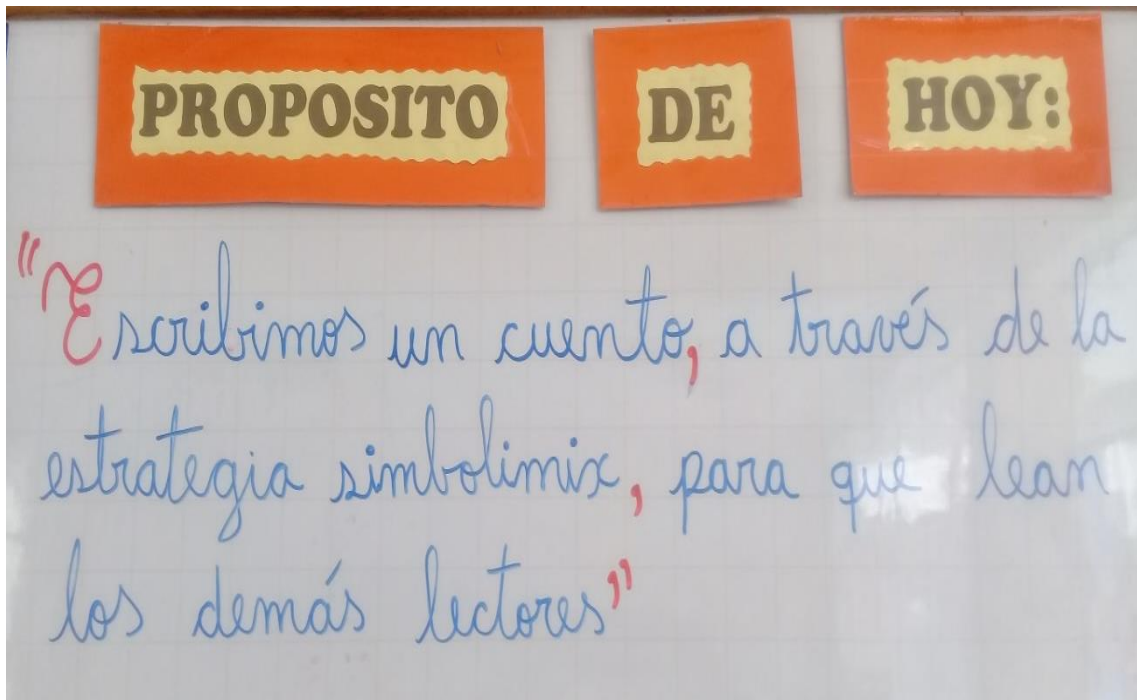 PROPOSITO DE HOY:
"Escribimos un cuento, a través de la
estrategia simbolimix, para que lean
los demás lectores"